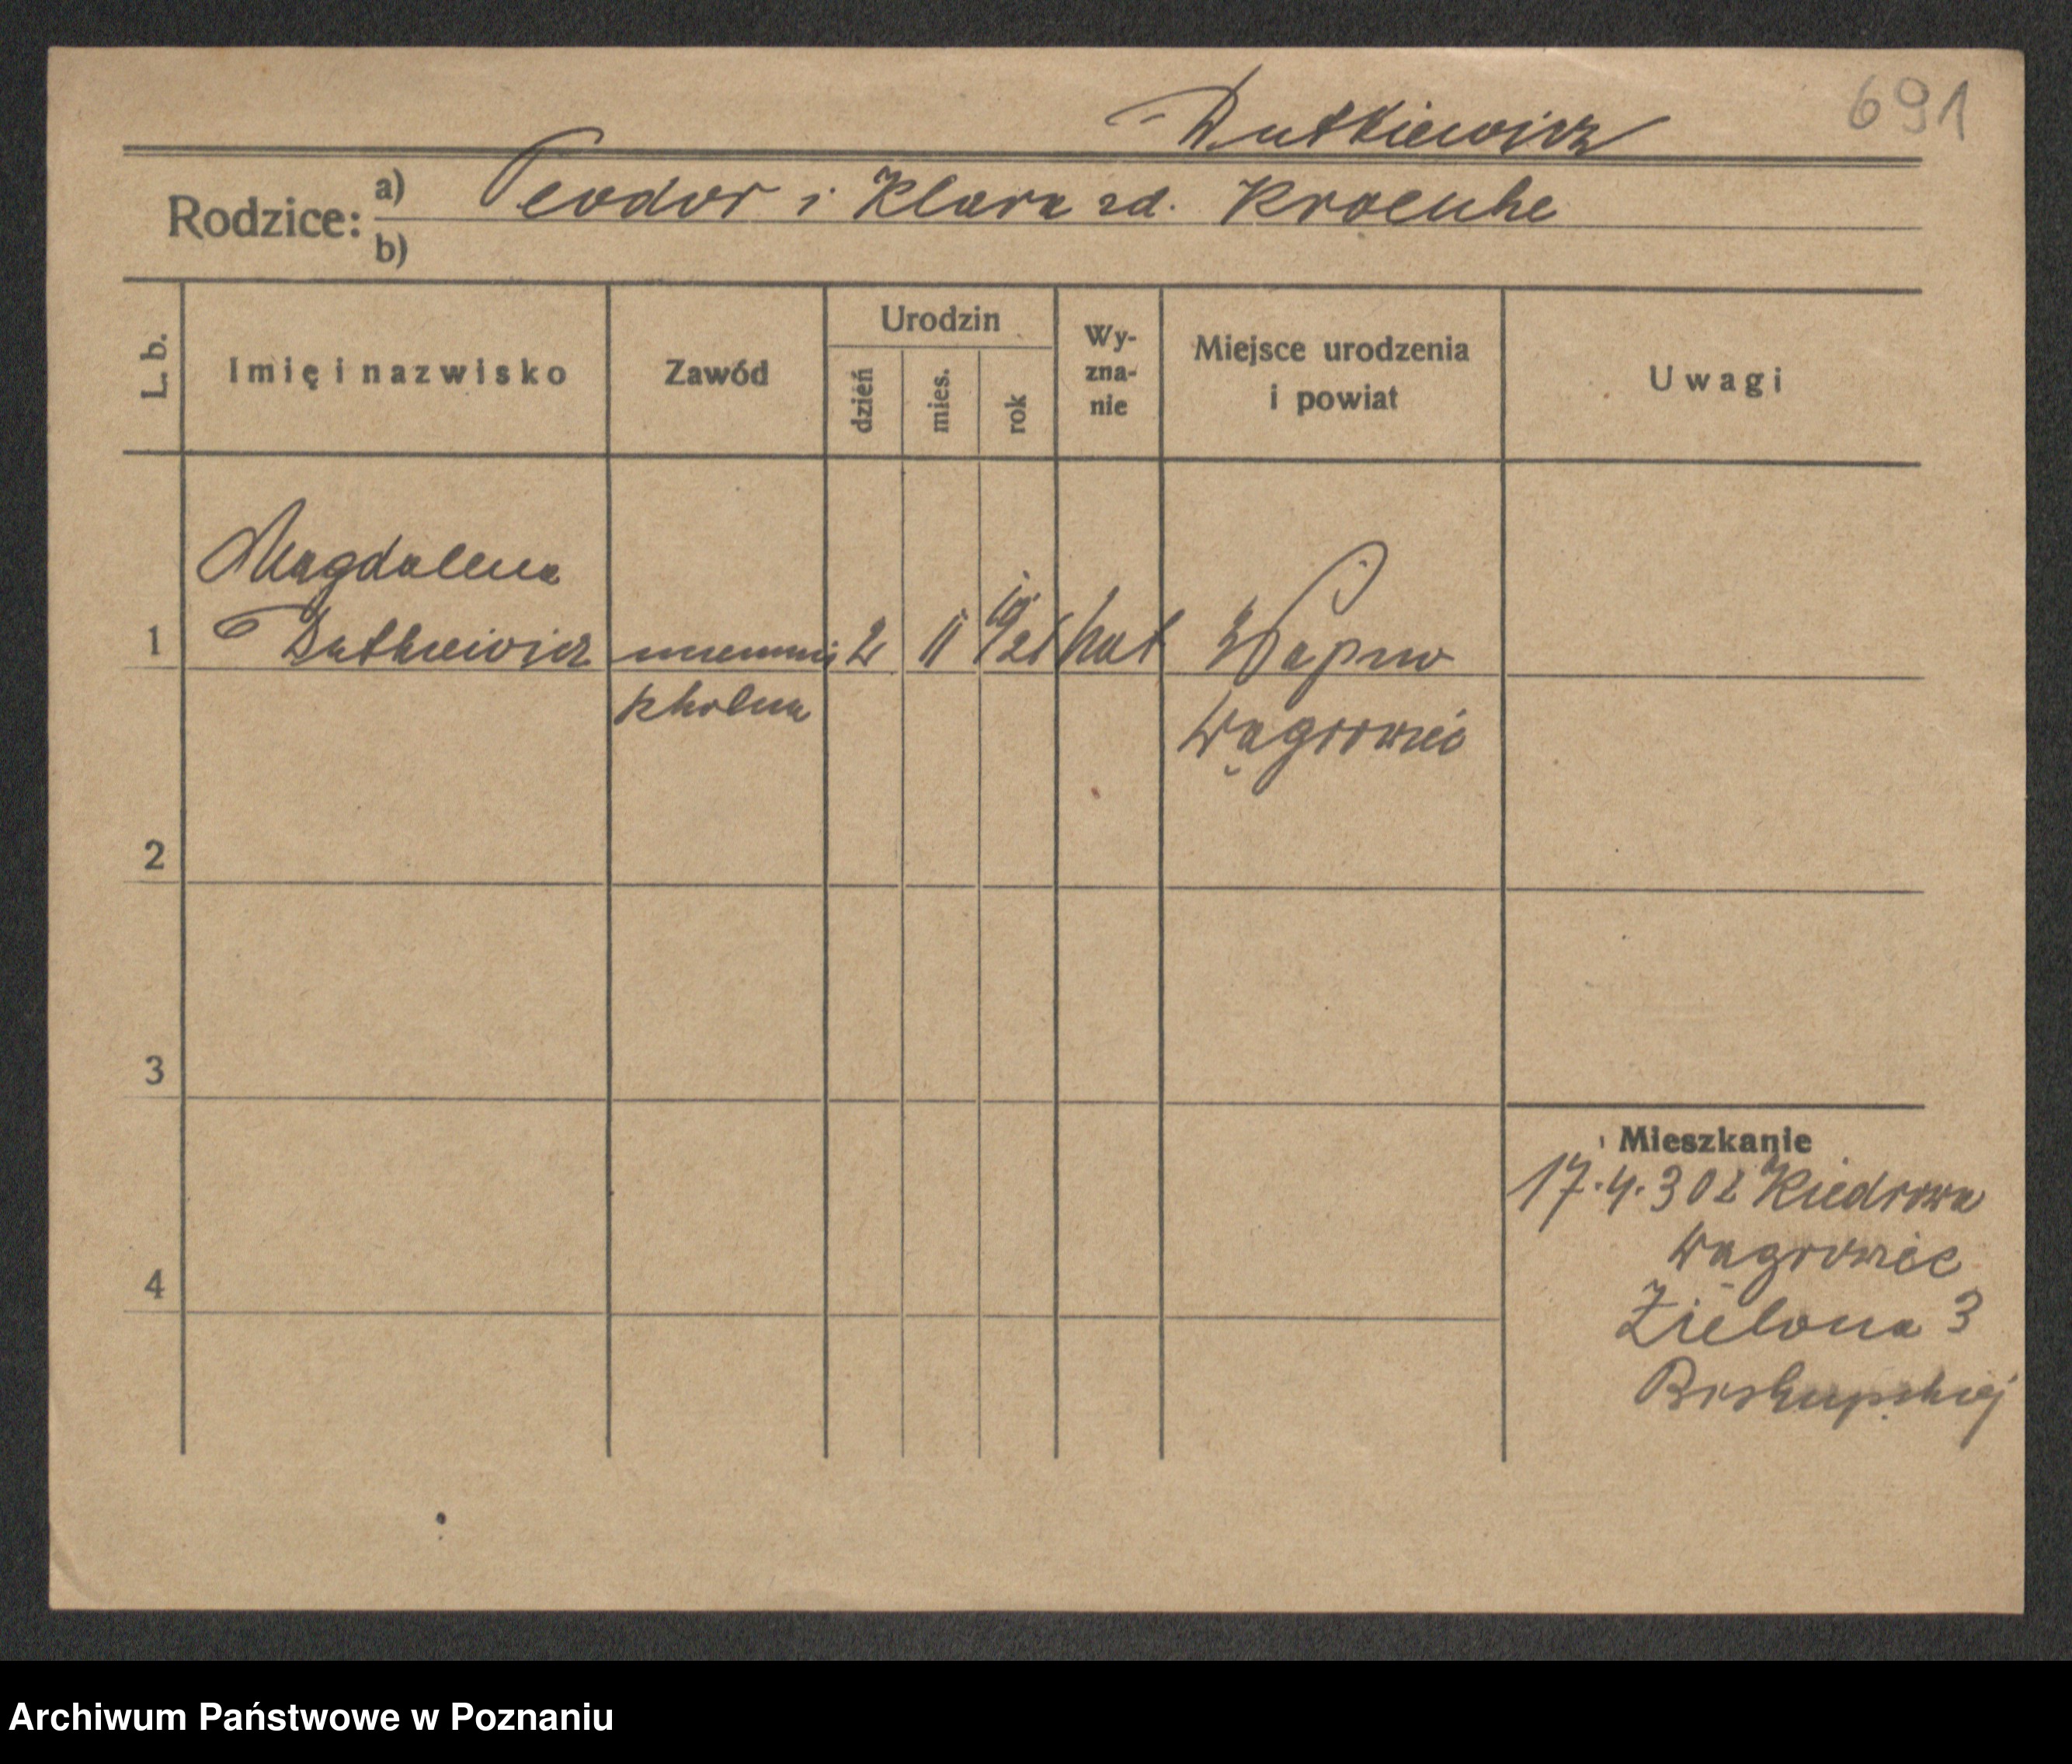 691
Dutkiewicz
Rodzice: a) Teodor i Klara zd. Kroenke
b)
L. b. Imię i nazwisko Zawód Urodzin dzień mies. rok Wy-zna-nie Miejsce urodzenia i powiat Uwagi
Magdalena
1 Dutkiewicz uczennic 2 II 19/21 kat Wapno
szkolna Wągrowiec
2
3
4
Mieszkanie
17.4.30 z Kiedrowa
Wągrowiec
Zielona 3
Biskupskiej
Archiwum Państwowe w Poznaniu